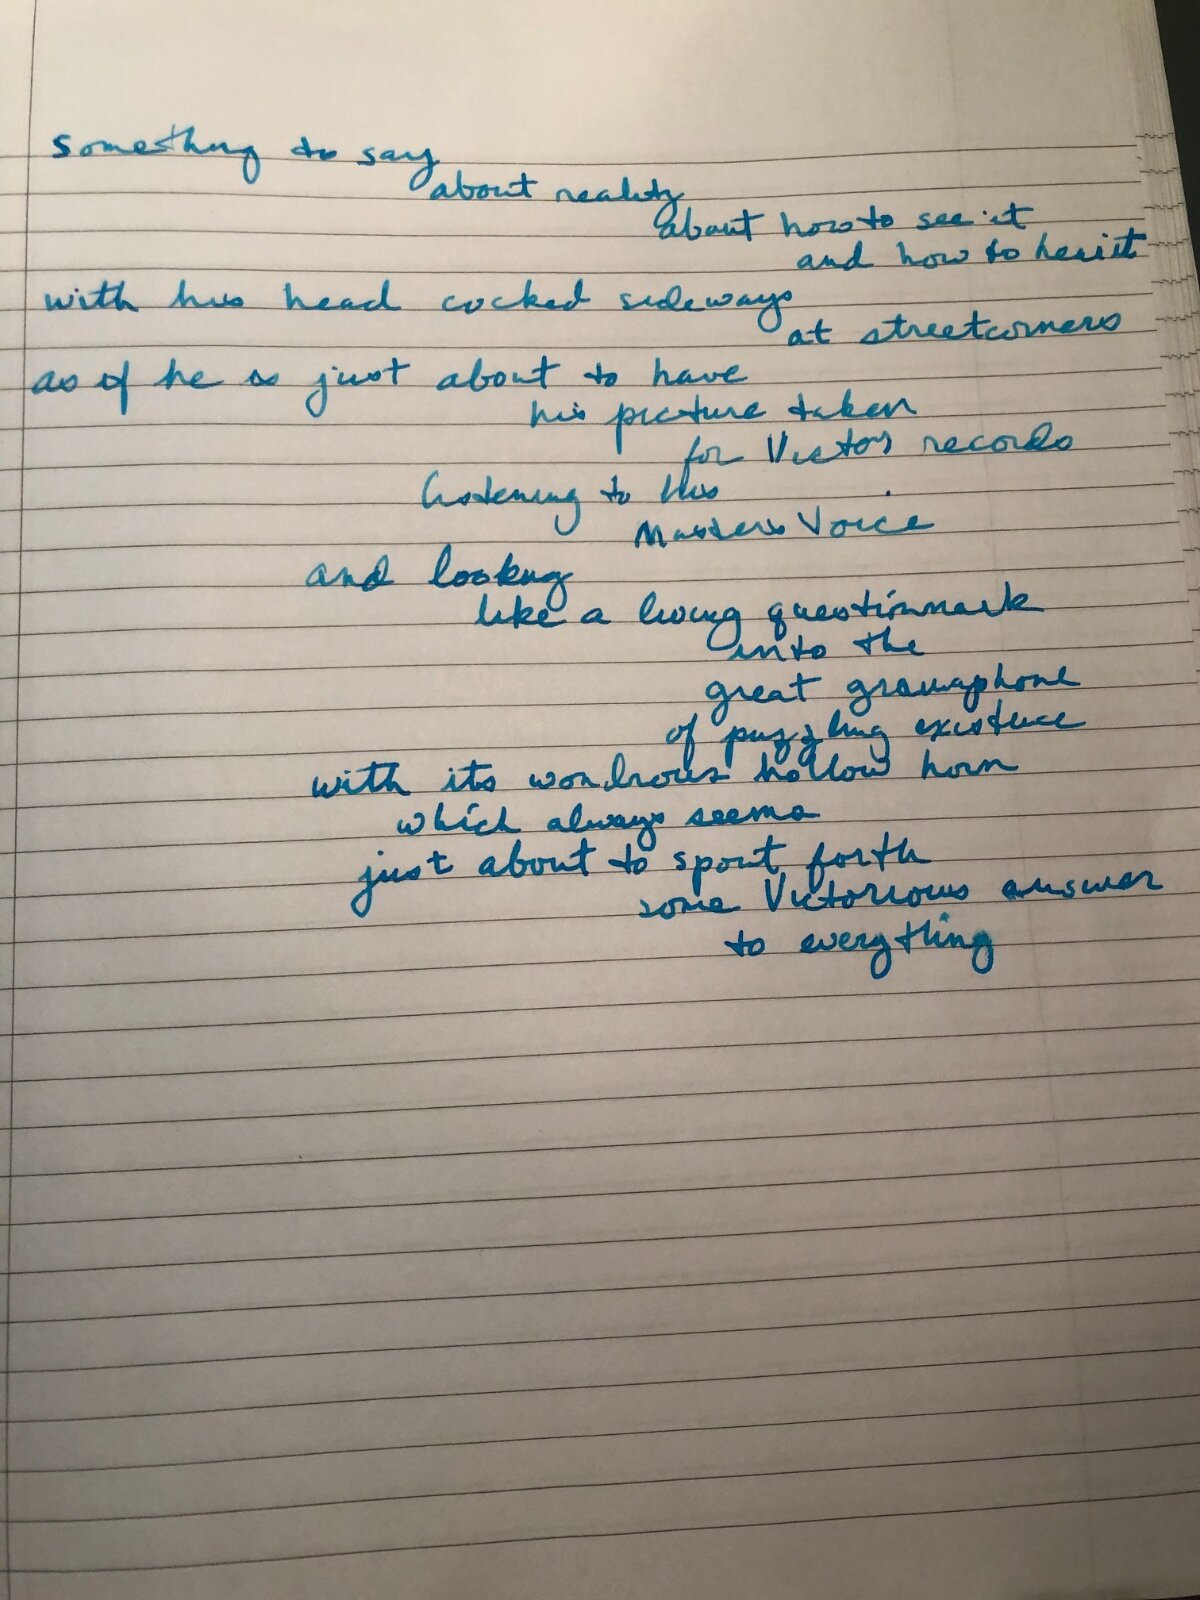 something to say
about reality
about how to see it
and how to hear it
with his head cocked sideways
at streetcorners
as if he is just about to have
his picture taken
for Victor records
listening to his
Master's Voice
and looking
like a living questionmark
into the
great gramaphone
of puzzling existence
with its wondrous hollow horn
which always seems
just about to spout forth
some Victorious answer
to everything